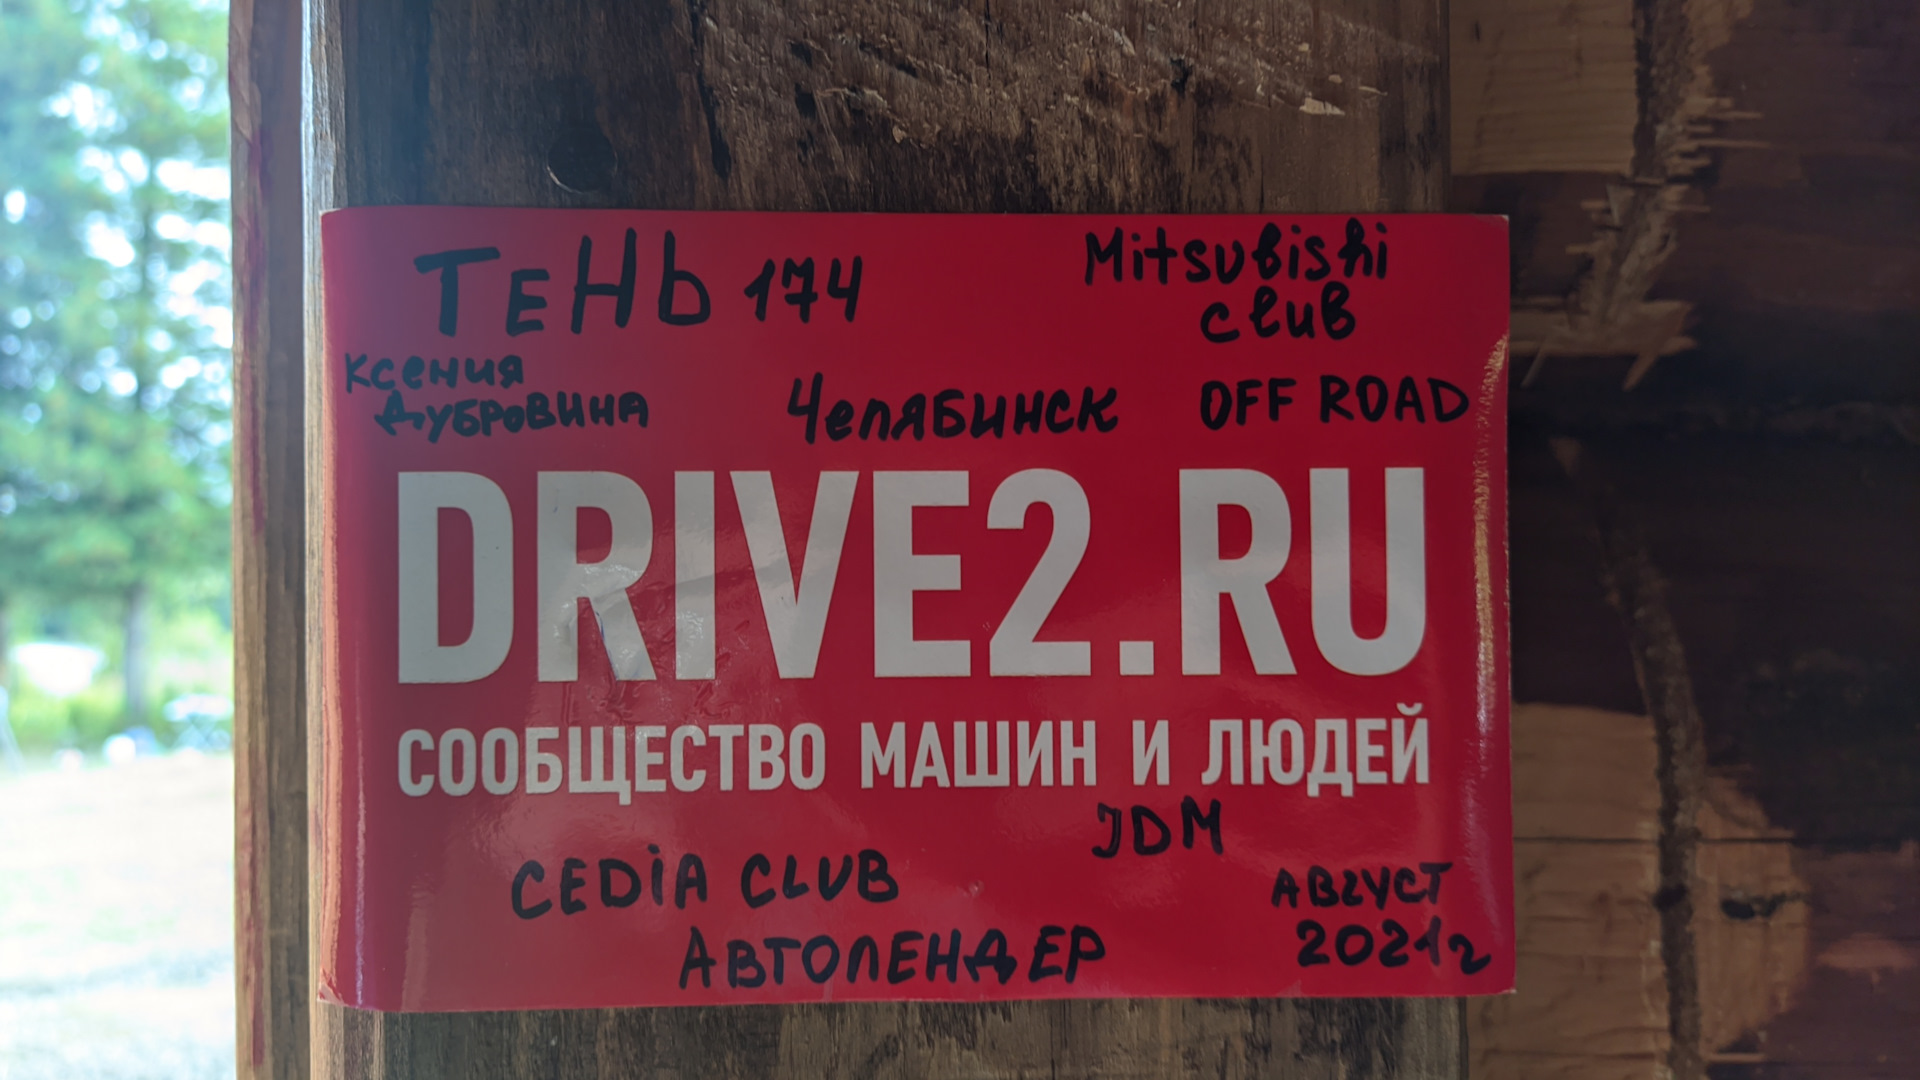 ТеНЬ 174
Mitsubishi
club
Ксения
Дубровина
Челябинск
OFF ROAD
DRIVE2.RU
СООБЩЕСТВО МАШИН И ЛЮДЕЙ
JDM
CEDiA CLUB
АВГУСТ
2021г
АВТОЛЕНДЕР